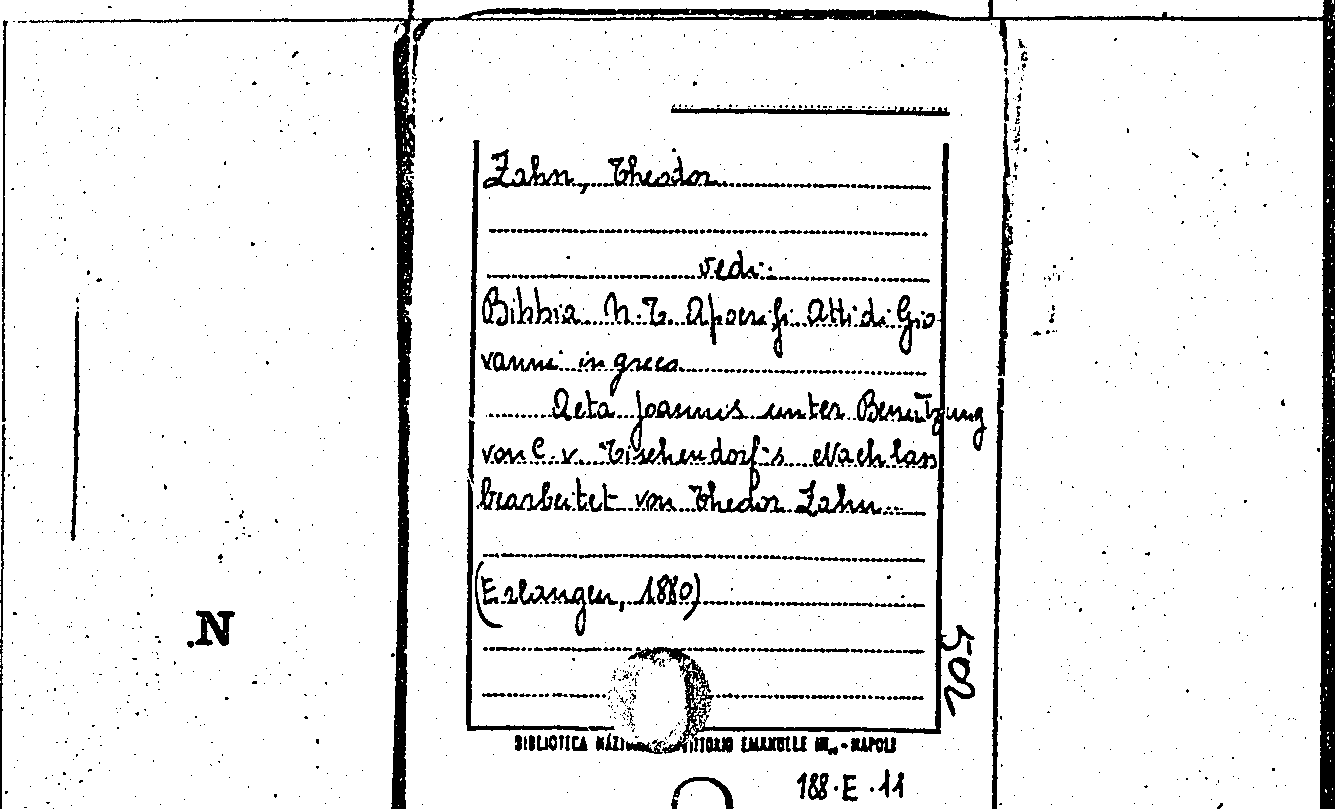 Zahn, Theodor
vedi:
Bibbia N.T. Apocrifi. Atti di Gio
vanni in greco
Acta Joannis unter Benutzung
von C. v. Tischendorf's Nachlass
bearbeitet von Thedor Zahn
(Erlangen, 1880)
.N
502
BIBLIOTECA VITTORIO EMANUELE III - NAPOLI
188.E.11